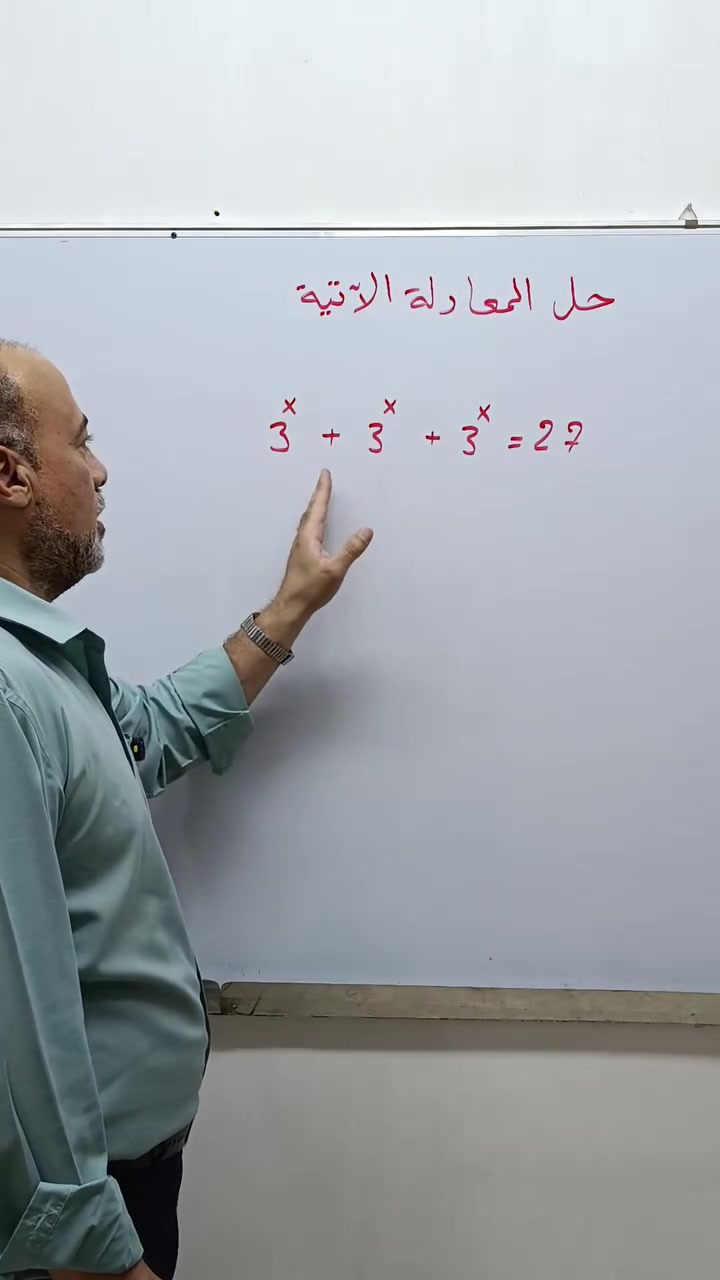 حل المعادلة الآتية
3^x + 3^x + 3^x = 27